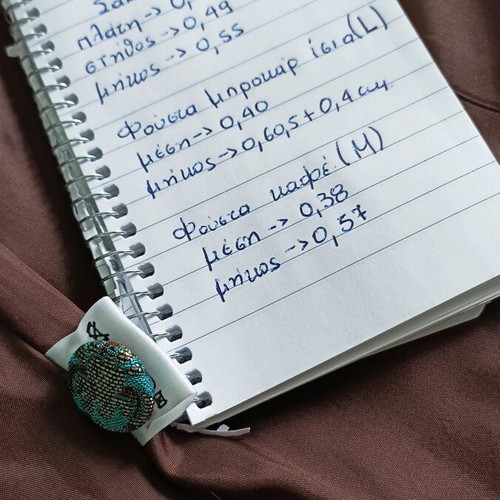 πλάτη->0,
στήθος->0,49
μήκος->0,55
φούστα μπροκάρ ίσια(L)
μέση->0,40
μήκος->0,60,5+0,4 εκ.
φούστα καφέ.(M)
μέση->0,38
μήκος->0,57
A
B